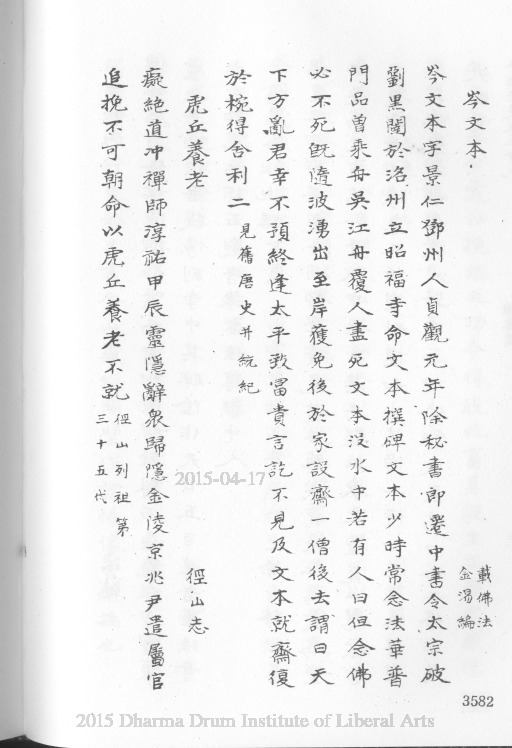 岑文本
載佛法
金湯編
岑文本字景仁鄧州人貞觀元年除秘書郎遷中書令太宗破
劉黑闥於洛州立昭福寺命文本撰碑文本少時常念法華普
門品曾乘舟吳江舟覆人盡死文本沒水中若有人曰但念佛
必不死既隨波湧出至岸獲免後於家設齋一僧後去謂曰天
下方亂君幸不預終逢太平致富貴言訖不見及文本就齋復
於椀得舍利二 見舊唐史并統紀
虎丘養老
徑山志
癡絕道冲禪師淳祐甲辰靈隱辭衆歸隱金陵京兆尹遣屬官
追挽不可朝命以虎丘養老不就 徑山列祖第
三十五代
3582
2015-04-17
2015 Dharma Drum Institute of Liberal Arts